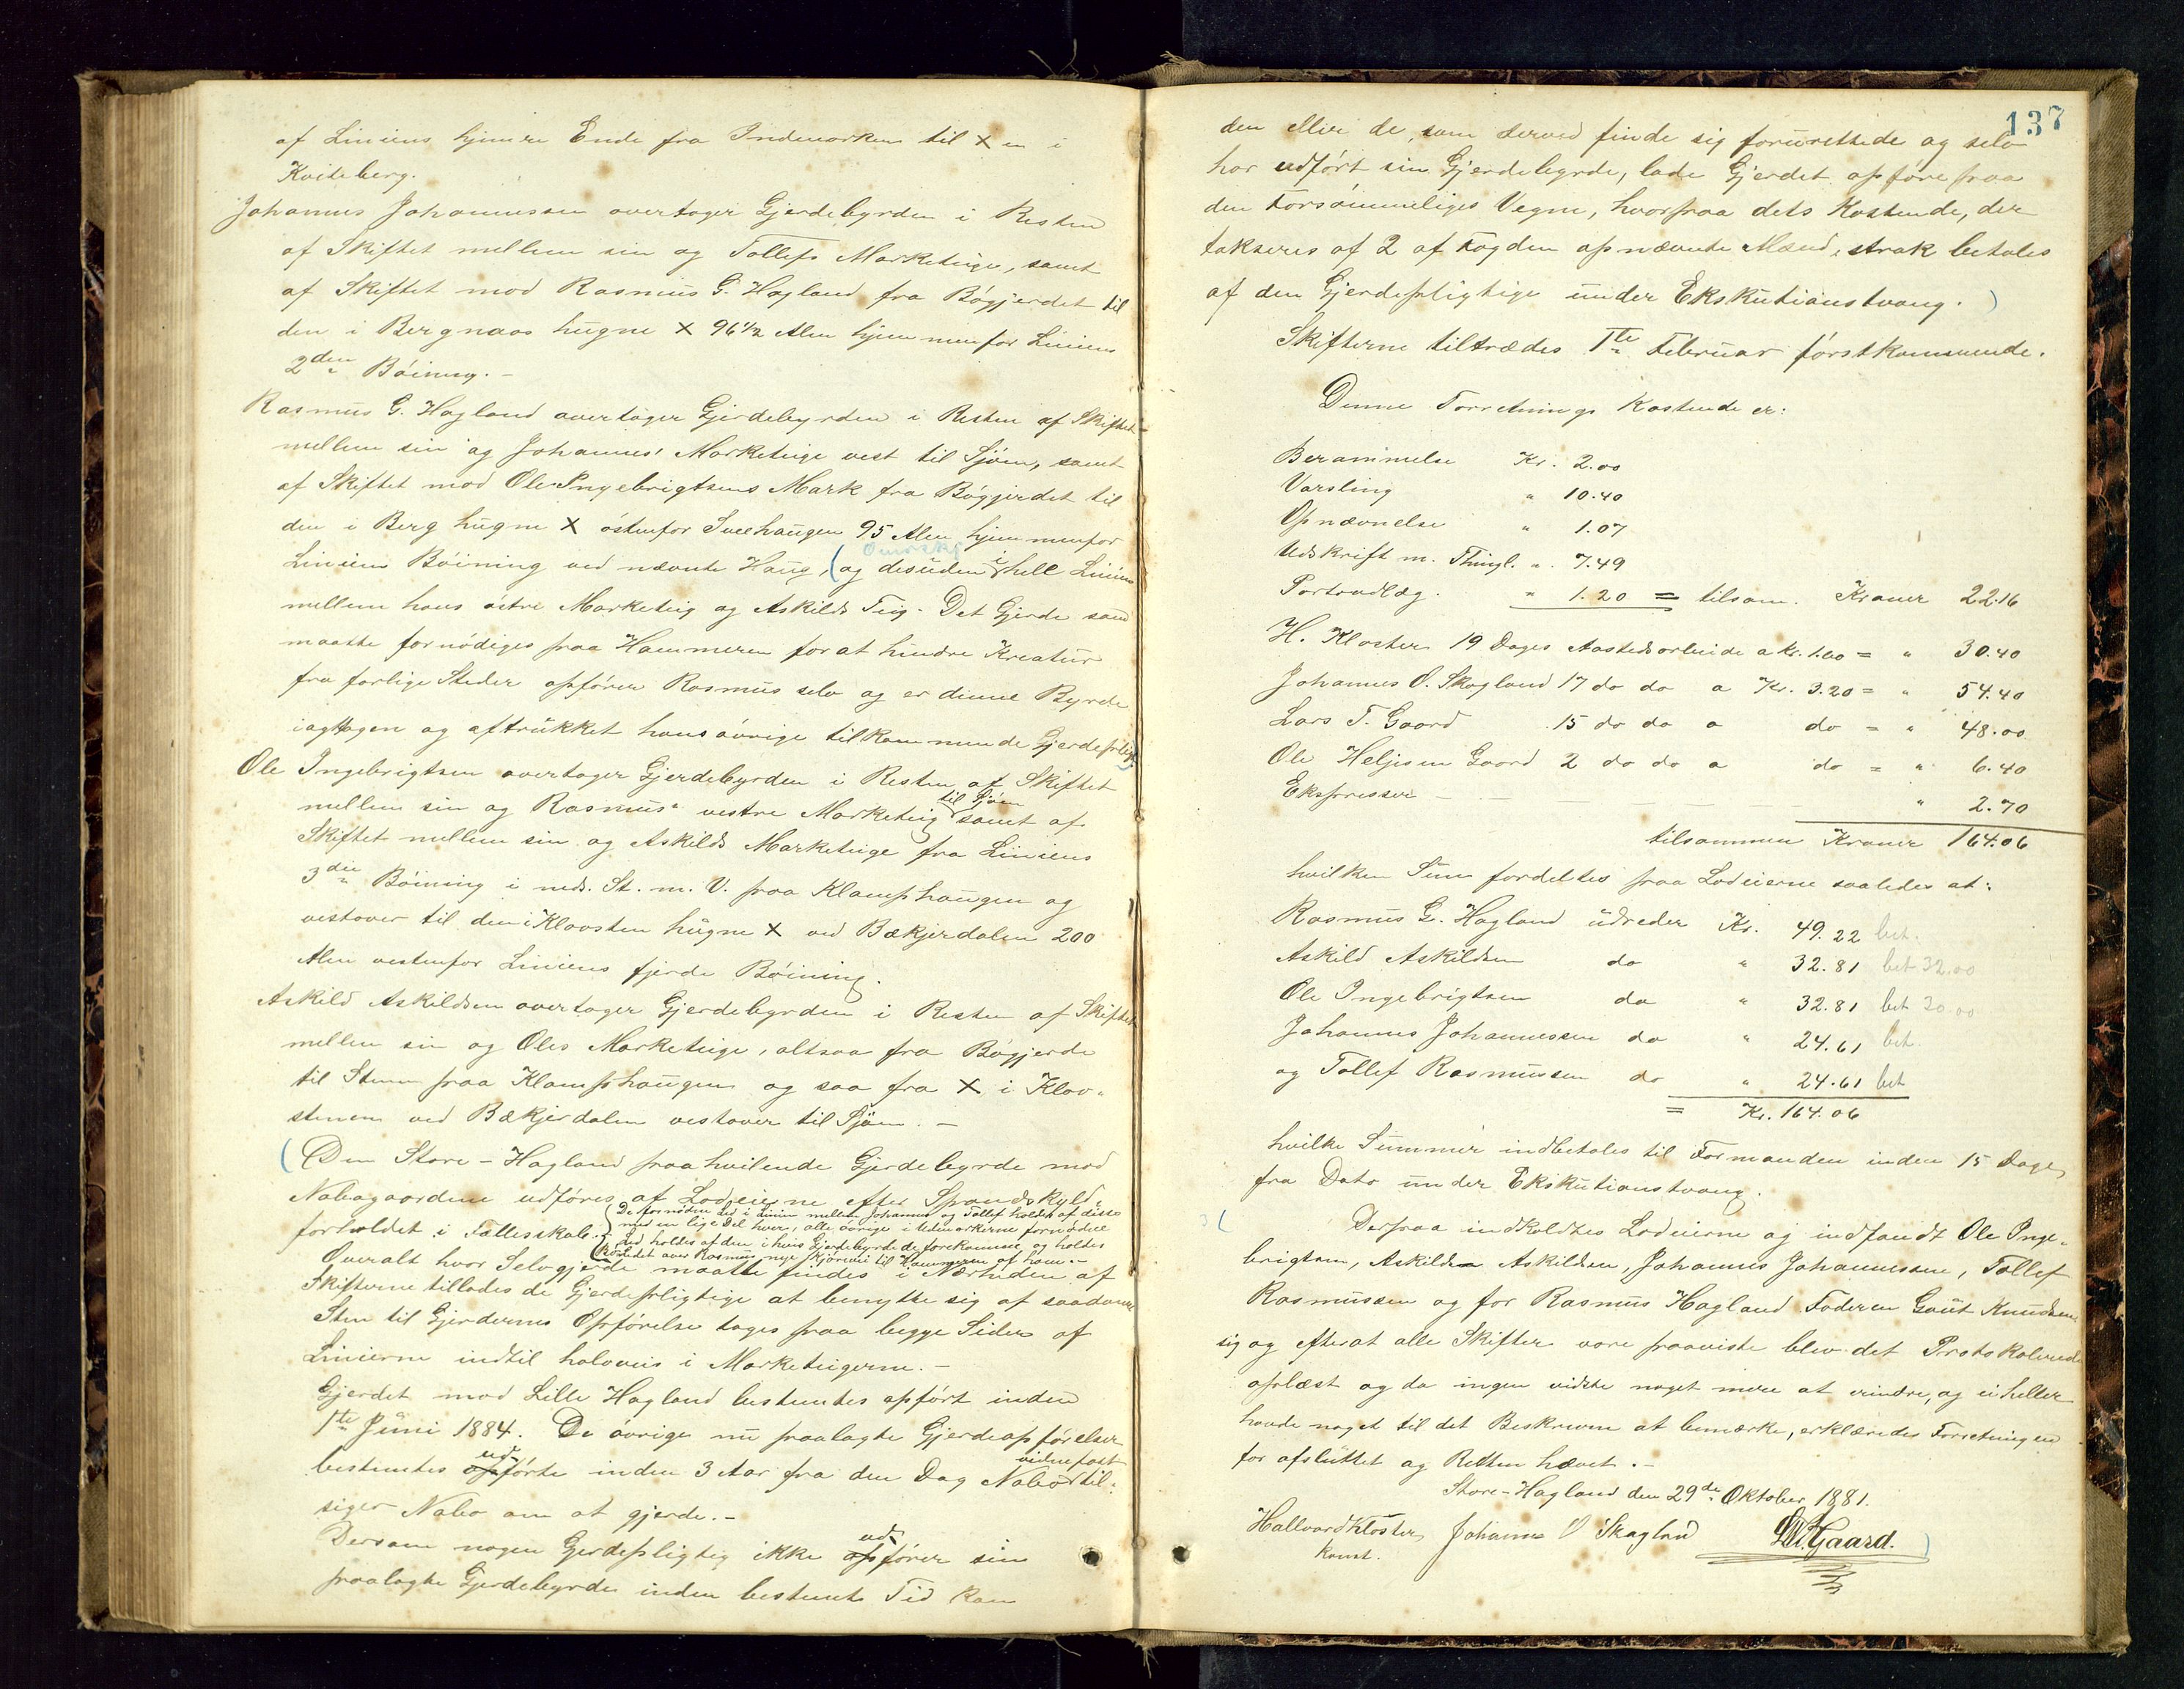 af Liniens hjemre Ende fra Indmarken til X en i
Kviteberg.
Johannes Johannessen overtager Gjerdebyrden i Resten
af Skiftet mellem sin og Tollefs Marketeige, samt
af Skiftet mod Rasmus G. Hagland fra Bógjerdet til
den i Bergnaas hugne X 96 1/2 Alen hjemmenfor Liniens
2den Bóining. -
Rasmus G. Hagland overtager Gjerdebyrden i Resten af Skiftet
mellem sin og Johannes' Marketeige vest til Sjóen, samt
af Skiftet mod Ole Ingebrigtsens Mark fra Bógjerdet til
den i Berg hugne X óstenfor Sveehaugen 95 Alen hjemmenfor
Liniens Bóining ved nævnte Haug, (og desuden i hele Linien
mellem hans óstre Marketeig og Askilds Teig - Det Gjerde som
maatte fornódiges paa Hammeren for at hindre Kreatur
fra farlige Steder opfórer Rasmus selv og er denne Byrde
iagttagen og aftrukket hans óvrige tilkommende Gjerdepligt)
Ole Ingebrigtsen overtager Gjerdebyrden i Resten af Skiftet
mellem sin og Rasmus' vestre Marketeig til Sjóen samt af
Skiftet mellem sin og Askilds Marketeige fra Liniens
3die Bóining i neds. St. m. V. paa Klamphaugen og
vestover til den i Klovsten hugne X ved Bækjerdalen 200
Alen vestenfor Liniens fjerde Bóining.
Askild Askildsen overtager Gjerdebyrden i Resten af Skiftet
mellem sin og Oles Marketeige, altsaa fra Bógjerde
til Stenen paa Klamphaugen og saa fra X i Klov-
stenen ved Bækjerdalen vestover til Sjóen. -
(Den Store-Hagland paahvilende Gjerdebyrde mod
Nabogaardene udfóres af Lodeierne efter Sproudskyld-
forholdet i Fællesskab. (De fornódne Led i Linien mellem Johannes og Tollef holdes af disse
med en lige Del hver, alle óvrige i Udmarkerne fornódne
Led holdes af den i hvis Gjerdebyrde de forekomme og holdes
Ledet over Rasmus nye Kjórevei til Hammeren af ham. -
Overalt hvor Selvgjerde maatte findes i Nærheden af
Skifterne tillades de Gjerdepligtige at benytte sig af saadanne
Sten til Gjerdernes Opfórelse tages paa begge Sider af
Linierne indtil halvveis i Marketeigerne. -
Gjerdet mod Lille Hagland bestemtes opfórt inden
1te Juni 1884. De óvrige nu paalagte Gjerdeopfórelser
bestemtes udfórte inden 3 Aar fra den Dag Nabo vidnefast til-
siger Nabo om at gjerde. -
Dersom nogen Gjerdepligtig ikke udfórer sin
paalagte Gjerdebyrde inden bestemte Tid kan
137
den eller de, som derved finde sig forurettede og selv
har udfórt sin Gjerdebyrde, lade Gjerdet opfóre paa
den Forsómmeliges Vegne, hvorpaa dets Kostende, der
takseres af 2 af Fogden opnævnte Mænd, strak betales
af den Gjerdepligtige under Ekskutionstvang. )
Skifterne tiltrædes 1te Februar fórstkommende.
Denne Forretnings Kostende er:
Berammelse Kr. 2.00
Varsling " 10.40
Opnævnelse " 1.07
Udskrift m. Thingl. " 7.49
Portoudlæg. " 1.20 = tilsam. Kroner 22.16
H. Kloster 19 Dages Aastedsarbeide a Kr. 1.60 = " 30.40
Johannes O. Skogland 17 do do a Kr. 3.20 = " 54.40
Lars T. Gaard 15 do do a do = " 48.00
Ole Heljesen Gaard 2 do do a do = " 6.40
Ekspresser - " 2.70
tilsammen Kroner 164.06
hvilken Sum fordeltes paa Lodeierne saaledes at:
Rasmus G. Hagland udreder Kr. 49.22 bet.
Askild Askildsen do " 32.81 bet 32.00
Ole Ingebrigtsen do " 32.81 bet 30.00
Johannes Johannessen do " 24.61 bet.
og Tollef Rasmussen do " 24.61 bet
= Kr. 164.06
hvilke Summer indbetales til Formanden inden 15 Dage
fra Dato under Ekskutionstvang.
( Derpaa indkaldtes Lodeierne og indfandt Ole Inge-
brigtsen, Askild Askildsen, Johannes Johannessen, Tollef
Rasmussen og for Rasmus Hagland Faderen Gaut Knudsen
sig og efterat alle Skifter vare paaviste blev det Protokolerede
oplæst og da ingen vidste noget mere at erindre, og ei heller
havde noget til det Beskrevne at bemærke, erklæredes Forretningen
for afsluttet og Retten hævet. -
Store-Hagland den 29de Oktober 1881.
Hallvard Kloster Johannes O Skagland L.T. Gaard. )
konst.